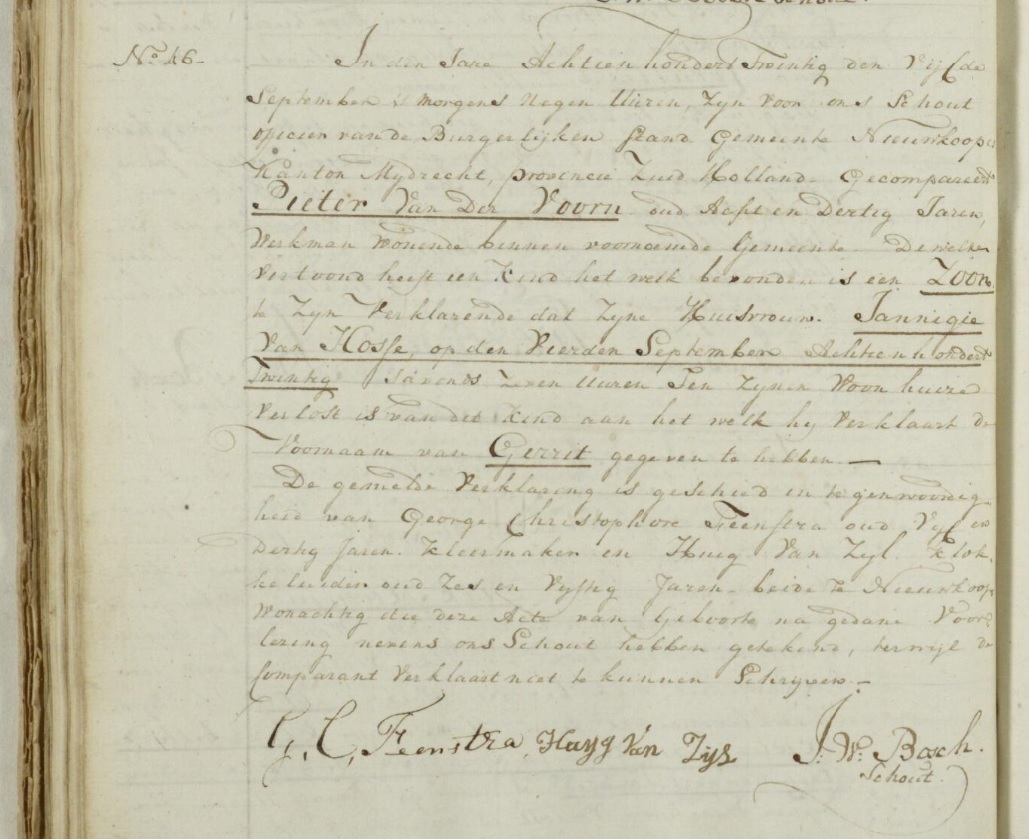 No 46-
In den Jare Achtien hondert Twintig den Vijfde
September s morgens Negen Uuren, Zyn voor ons Schout
officier van de Burgerlijken Stand Gemeente Nieuwkoop
Kanton Mydrecht, provincie Zuid Holland. Gecompareert
Pieter Van Der Voorn oud Acht en Dertig Jaren,
Werkman Wonende binnen voornoemde Gemeente. Dewelke
vertoond heeft een Kind het welk bevonden is een Zoon
te Zyn Verklarende dat Zyne Huisvrouw. Jannigie
Van Hosse, op den Vierden September Achtienhondert
Twintig Savonds Zeven Uuren Ten Zynen Woon huize
Verlost is van dit Kind aan het welk hy Verklaart de
Voornaam van Gerrit gegeven te hebben.—
De gemelde Verklaring is geschied in tegenwoordig-
heid van George Christophore Feenstra oud Vyf en
Dertig Jaren. Kleermaker en Huig Van Zyl. Klok
ke luider oud Zes en Vyftig Jaren. beide te Nieuwkoop
Wonachtig die deze Acte van Geboorte na gedane Voor
lezing nevens ons Schout hebben getekend, terwijl de
Comparant Verklaart niet te kunnen Schryven.—
G, C, Feenstra Huyg Van Zyl J. W. Bosch.
Schout.